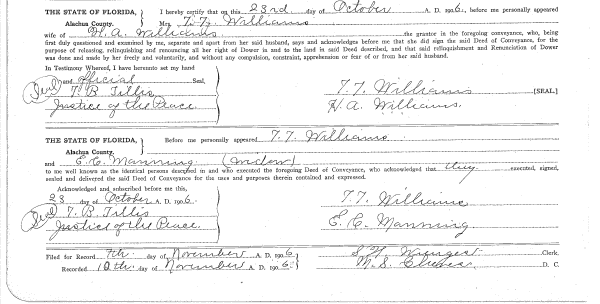 THE STATE OF FLORIDA, } I hereby certify that on this 23rd day of October A. D. 1906, before me personally appeared
Alachua County. } Mrs. T. T. Williams
wife of H. A. Williams the grantor in the foregoing conveyance, who, being
first duly questioned and examined by me, separate and apart from her said husband, says and acknowledges before me that she did sign the said Deed of Conveyance, for the
purpose of releasing, relinquishing and renouncing all her right of Dower in and to the land in said Deed described, and that said relinquishment and Renunciation of Dower
was done and made by her freely and voluntarily, and without any compulsion, constraint, apprehension or fear of or from her said husband.
In Testimony Whereof, I have hereunto set my hand
and official Seal,
(Seal) T. B. Tillis
Justice of the Peace.
T. T. Williams [SEAL]
H. A. Williams.
THE STATE OF FLORIDA, } Before me personally appeared T. T. Williams
Alachua County. }
and E. C. Manning (widow)
to me well known as the identical persons described in and who executed the foregoing Deed of Conveyance, who acknowledged that they executed, signed,
sealed and delivered the said Deed of Conveyance for the uses and purposes therein contained and expressed.
Acknowledged and subscribed before me this,
23 day of October A. D. 1906.
(Seal) T. B. Tillis
Justice of the Peace.
T. T. Williams
E. C. Manning
Filed for Record 7th. day of November A. D. 1906 }
Recorded 10th. day of November A. D. 1906. }
S. H. Wienges Clerk.
M. S. D. C.